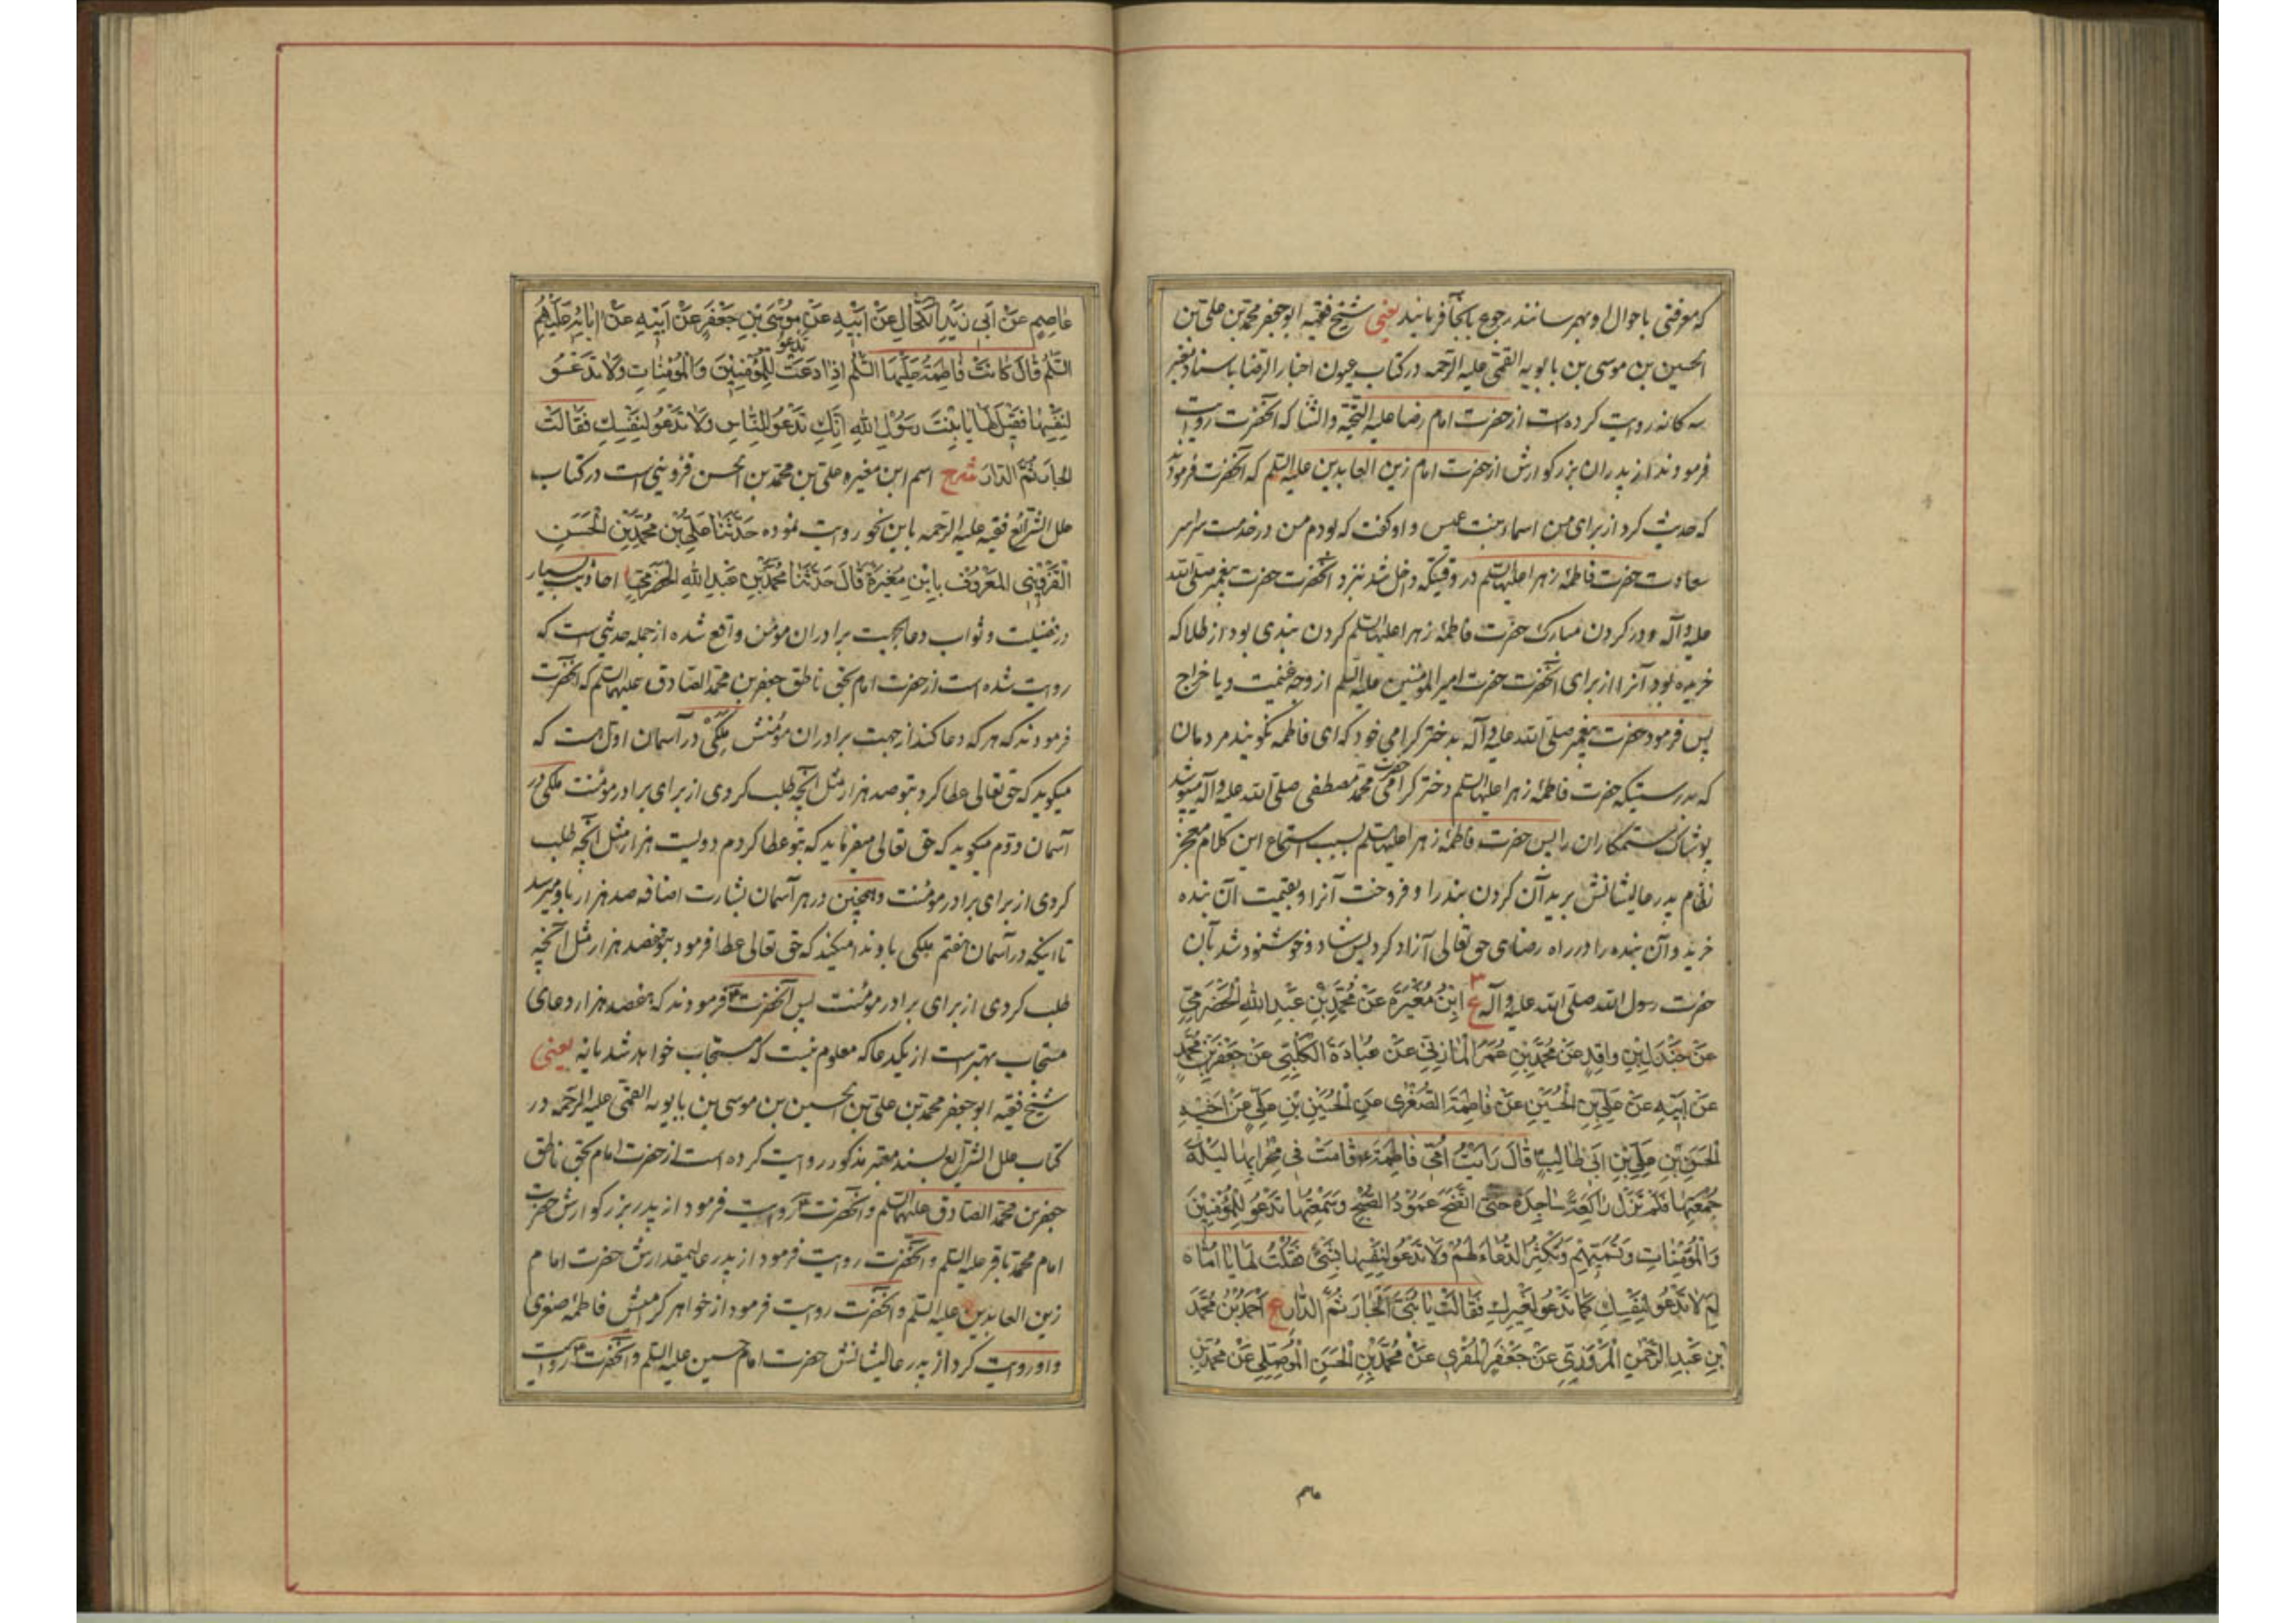 که معرفتی باحوال او بهمرسانند رجوع بآنجا فرمایند یعنی شیخ فقیه ابوجعفر محمد بن علی بن
الحسین بن موسی بن بابویه القمی علیه الرحمه در کتاب عیون اخبار الرضا باسناد معتبر
سه کانه روایت کرده است از حضرت امام رضا علیه التحیة والثنا که آنحضرت روایت
فرمودند از پدران بزرکوارش از حضرت امام زین العابدین علیه السلم که آنحضرت فرمود
که حدیث کرد از برای من اسماء بنت عمیس و او کفت که بودم من در خدمت سراسر
سعادت حضرت فاطمهٔ زهرا علیها السلم در وقتیکه داخل شد بنزد آنحضرت حضرت پیغمبر صلی الله
علیه وآله و در کردن مبارک حضرت فاطمهٔ زهرا علیها السلم کردن بندی بود از طلا که
خریده بود آنرا از برای آنحضرت حضرت امیر المومنین علیه السلم از وجه غنیمت و یا خراج
پس فرمود حضرت پیغمبر صلی الله علیه وآله بدختر کرامی خود که ای فاطمه نکویند مردمان
که بدرستیکه حضرت فاطمهٔ زهرا علیها السلم دختر کرامی حضرت محمد مصطفی صلی الله علیه وآله میپوشد
پوشاک ستمکاران را پس حضرت فاطمهٔ زهرا علیها السلم بسبب استماع این کلام معجز
نظام پدر عالیشانش برید آن کردن بند را و فروخت آنرا و بقیمت آن بنده
خرید و آن بنده را در راه رضای حق تعالی آزاد کرد پس شاد و خوشنود شد بآن
حضرت رسول الله صلی الله علیه وآله ع ابْنُ مُغَیْرَةَ عَنْ مُحَمَّدِ بْنِ عَبْدِ اللهِ الْحَضْرَمِیِّ
عَنْ جَنْدَلِ بْنِ وَاقِدٍ عَنْ مُحَمَّدِ بْنِ عُمَرَ الْمَازِنِیِّ عَنْ عُبَادَةَ الْکَلْبِیِّ عَنْ جَعْفَرِ بْنِ مُحَمَّدٍ
عَنْ اَبِیْهِ عَنْ عَلِیِّ بْنِ الْحُسَیْنِ عَنْ فَاطِمَةَ الصُّغْرٰی عَنِ الْحُسَیْنِ بْنِ عَلِیٍّ عَنْ اَخِیْهِ
الْحَسَنِ بْنِ عَلِیِّ بْنِ اَبِی طَالِبٍ قَالَ رَاَیْتُ اُمِّی فَاطِمَةَ قَامَتْ فِی مِحْرَابِهَا لَیْلَةَ
جُمُعَتِهَا فَلَمْ تَزَلْ رَاکِعَةً سَاجِدَةً حَتَّی اتَّضَحَ عَمُوْدُ الصُّبْحِ وَسَمِعْتُهَا تَدْعُوْ لِلْمُؤْمِنِیْنَ
وَالْمُؤْمِنَاتِ وَتُسَمِّیْهِمْ وَتُکْثِرُ الدُّعَاءَ لَهُمْ وَلَا تَدْعُوْ لِنَفْسِهَا بِشَیْءٍ فَقُلْتُ لَهَا یَا اُمَّاهْ
لِمَ لَا تَدْعُوْ لِنَفْسِكِ کَمَا تَدْعُوْ لِغَیْرِكِ فَقَالَتْ یَا بُنَیَّ الْجَارَ ثُمَّ الدَّارَ ع اَحْمَدُ بْنُ مُحَمَّدِ
بْنِ عَبْدِ الرَّحْمٰنِ الْمَرْوَزِیِّ عَنْ جَعْفَرٍ الْمُقْرِی عَنْ مُحَمَّدِ بْنِ الْحَسَنِ الْمَوْصِلِیِّ عَنْ مُحَمَّدِ بْنِ
عاصم
عَاصِمٍ عَنْ اَبِی زَیْدٍ الْکَحَّالِ عَنْ اَبِیْهِ عَنْ مُوْسَی بْنِ جَعْفَرٍ عَنْ اَبِیْهِ عَنْ اٰبَائِهِ عَلَیْهِمُ
السَّلٰمُ قَالَ کَانَتْ فَاطِمَةُ عَلَیْهَا السَّلٰمُ اِذَا دَعَتْ تَدْعُوْ لِلْمُؤْمِنِیْنَ وَالْمُؤْمِنَاتِ وَلَا تَدْعُوْ
لِنَفْسِهَا فَقِیْلَ لَهَا یَا بِنْتَ رَسُوْلِ اللهِ اِنَّكِ تَدْعُوْ لِلنَّاسِ وَلَا تَدْعُوْ لِنَفْسِكِ فَقَالَتْ
الْجَارَ ثُمَّ الدَّارَ شرح اسم ابن مغیره علی بن محمد بن الحسن قزوینی است در کتاب
علل الشرائع فقیه علیه الرحمه باین نحو روایت نموده حَدَّثَنَا عَلِیُّ بْنُ مُحَمَّدِ بْنِ الْحَسَنِ
الْقَزْوِیْنِی الْمَعْرُوْفُ بِابْنِ مُغَیْرَةَ قَالَ حَدَّثَنَا مُحَمَّدُ بْنُ عَبْدِ اللهِ الْحَضْرَمِیُّ احادیث بسیار
در فضیلت و ثواب دعا بجهت برادران مومن واقع شده از جمله حدیثی است که
روایت شده است از حضرت امام بحق ناطق جعفر بن محمد الصادق علیهما السلم که آنحضرت
فرمودند که هر که دعا کند از جهت برادران مؤمنش ملکی در آسمان اول است که
میکوید که حق تعالی عطا کرد بتو صد هزار مثل آنچه طلب کردی از برای برادر مؤمنت ملکی در
آسمان دوم میکوید که حق تعالی میفرماید که بتو عطا کردم دویست هزار مثل آنچه طلب
کردی از برای برادر مؤمنت و همچنین در هر آسمان بشارت اضافه صد هزار باو میرسد
تا اینکه در آسمان هفتم ملکی باو ندا میکند که حق تعالی عطا فرمود بتو هفصد هزار مثل آنچه
طلب کردی از برای برادر مومنت پس آنحضرت فرمودند که هفصد هزار دعای
مستجاب بهتر است از یکدعا که معلوم نیست که مستجاب خواهد شد یا نه یعنی
شیخ فقیه ابوجعفر محمد بن علی بن الحسین بن موسی بن بابویه القمی علیه الرحمه در
کتاب علل الشرایع بسند معتبر مذکور روایت کرده است از حضرت امام بحق ناطق
جعفر بن محمد الصادق علیهما السلم و آنحضرت روایت فرمود از پدر بزرکوارش حضرت
امام محمد باقر علیه السلم و آنحضرت روایت فرمود از پدر عالیمقدارش حضرت امام
زین العابدین علیه السلم و آنحضرت روایت فرمود از خواهر کرامیش فاطمهٔ صغری
و او روایت کرد از پدر عالیشانش حضرت امام حسین علیه السلم و آنحضرت روایت